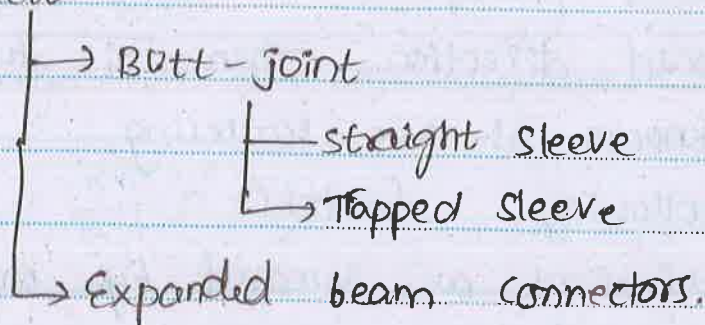 Butt-joint
straight sleeve
Trapped sleeve
Expanded beam connectors.